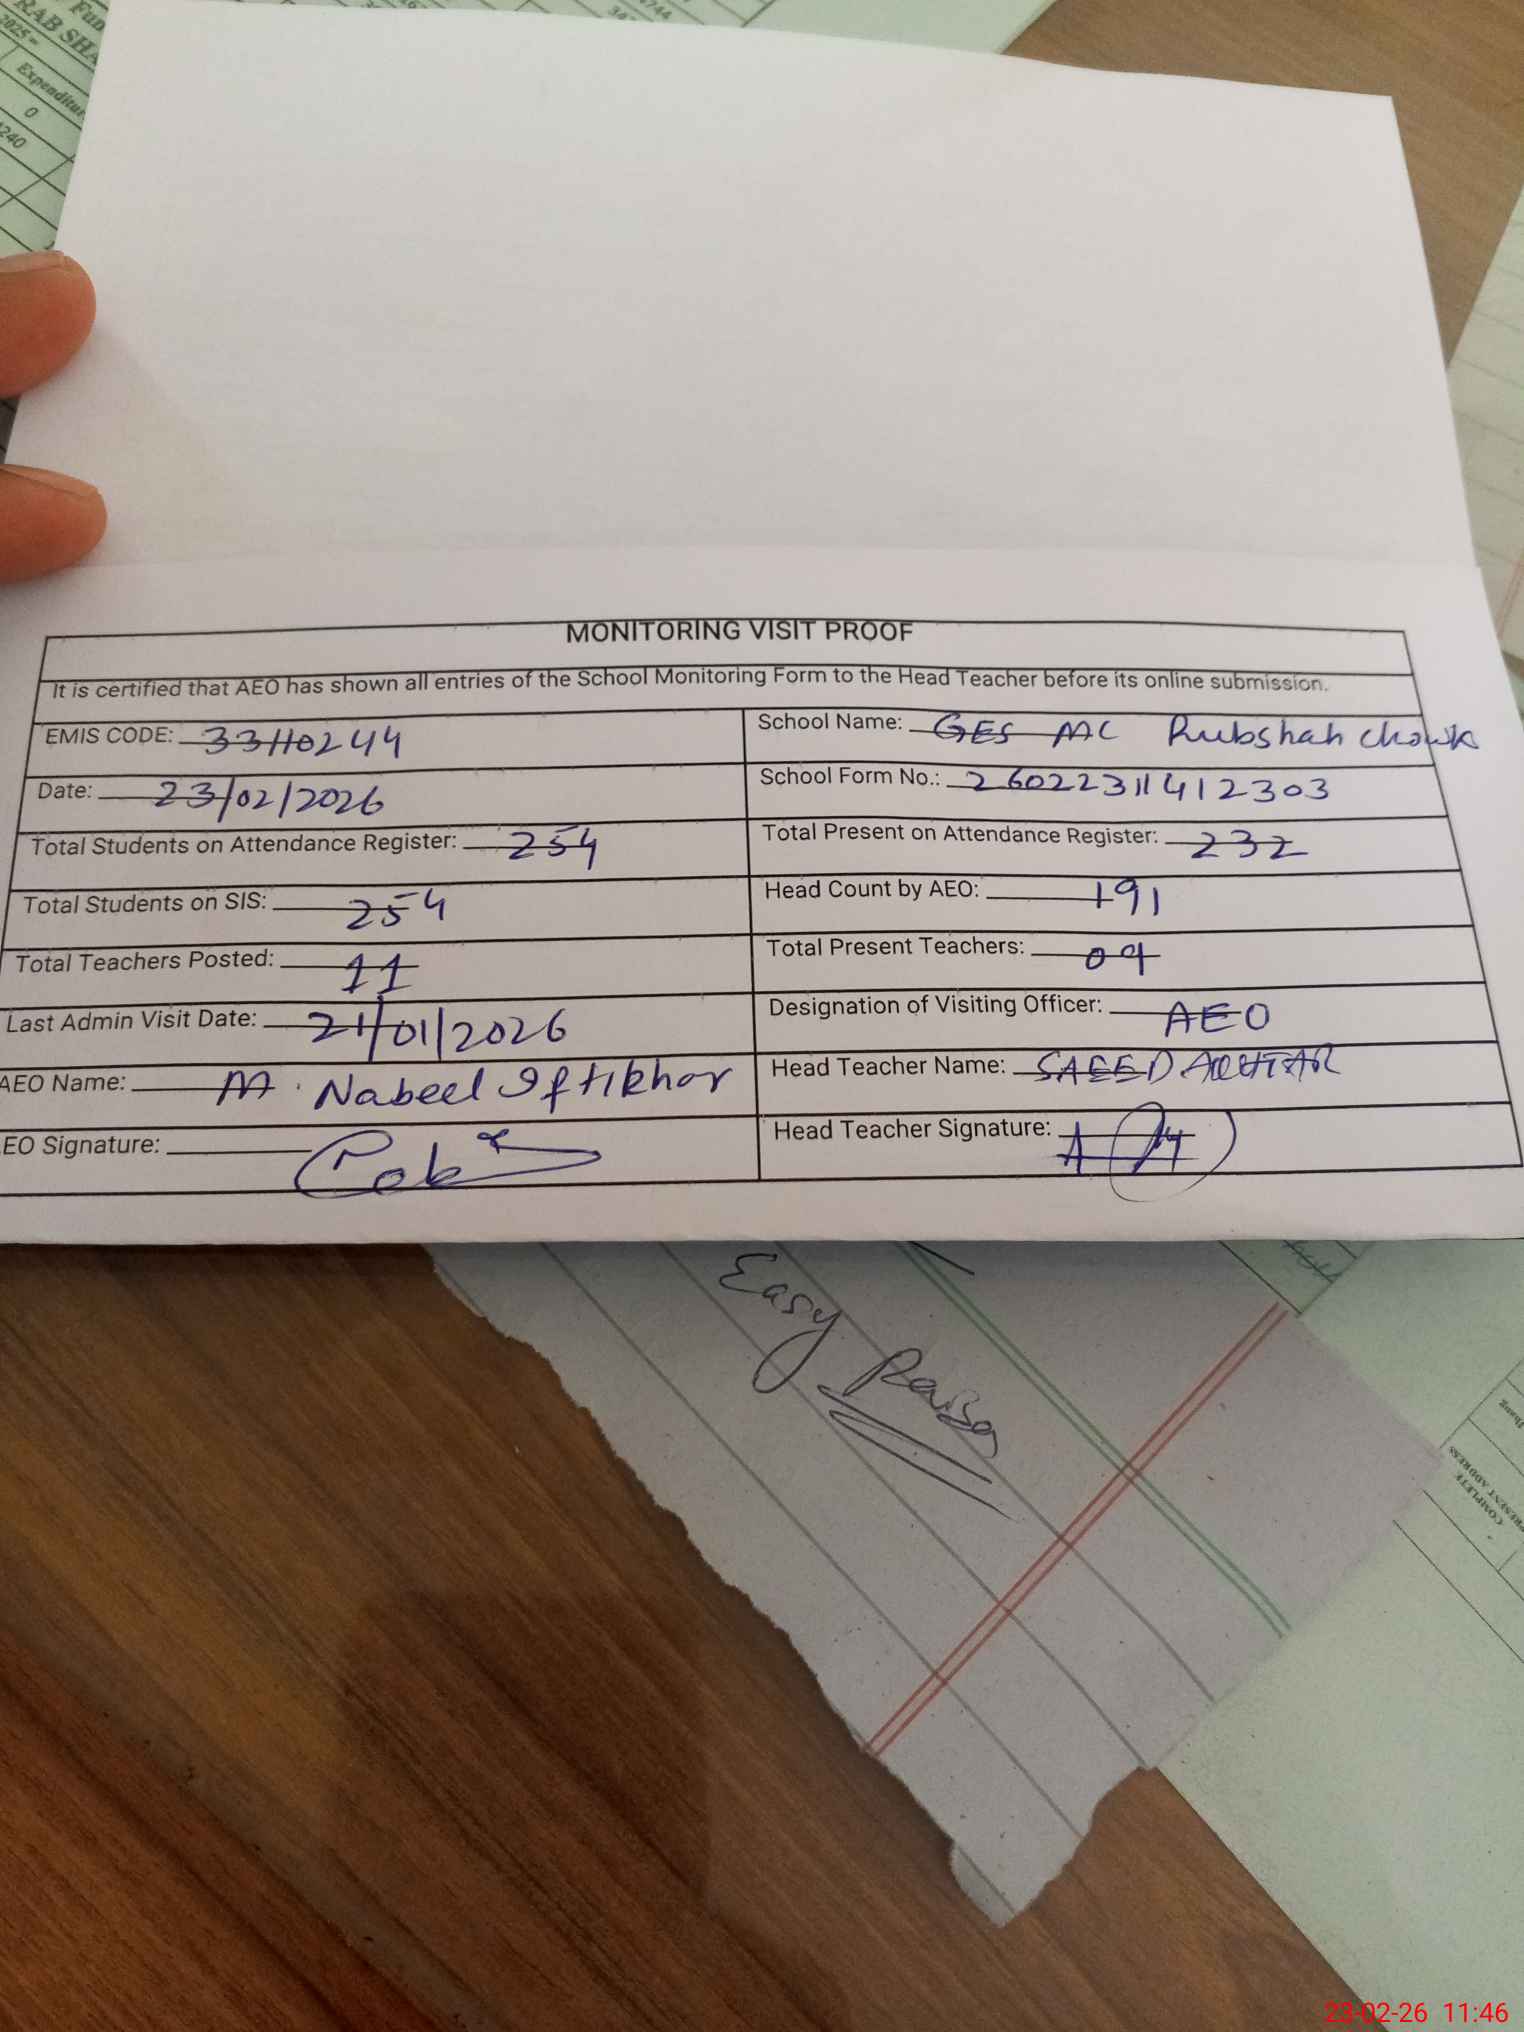 Fun
RAB SHA
2025 -
Expenditur
0
240
4744
MONITORING VISIT PROOF
It is certified that AEO has shown all entries of the School Monitoring Form to the Head Teacher before its online submission.
EMIS CODE: 33110244
School Name: GES MC Rubshah chowk
Date: 23/02/2026
School Form No.: 26022311412303
Total Students on Attendance Register: 254
Total Present on Attendance Register: 232
Total Students on SIS: 254
Head Count by AEO: 191
Total Teachers Posted: 11
Total Present Teachers: 09
Last Admin Visit Date: 21/01/2026
Designation of Visiting Officer: AEO
AEO Name: M. Nabeel Iftikhar
Head Teacher Name: SAEED AKHTAR
EO Signature:
Head Teacher Signature:
Easy Paisa
COMPLETE
PRESENT ADDRESS
23-02-26 11:46